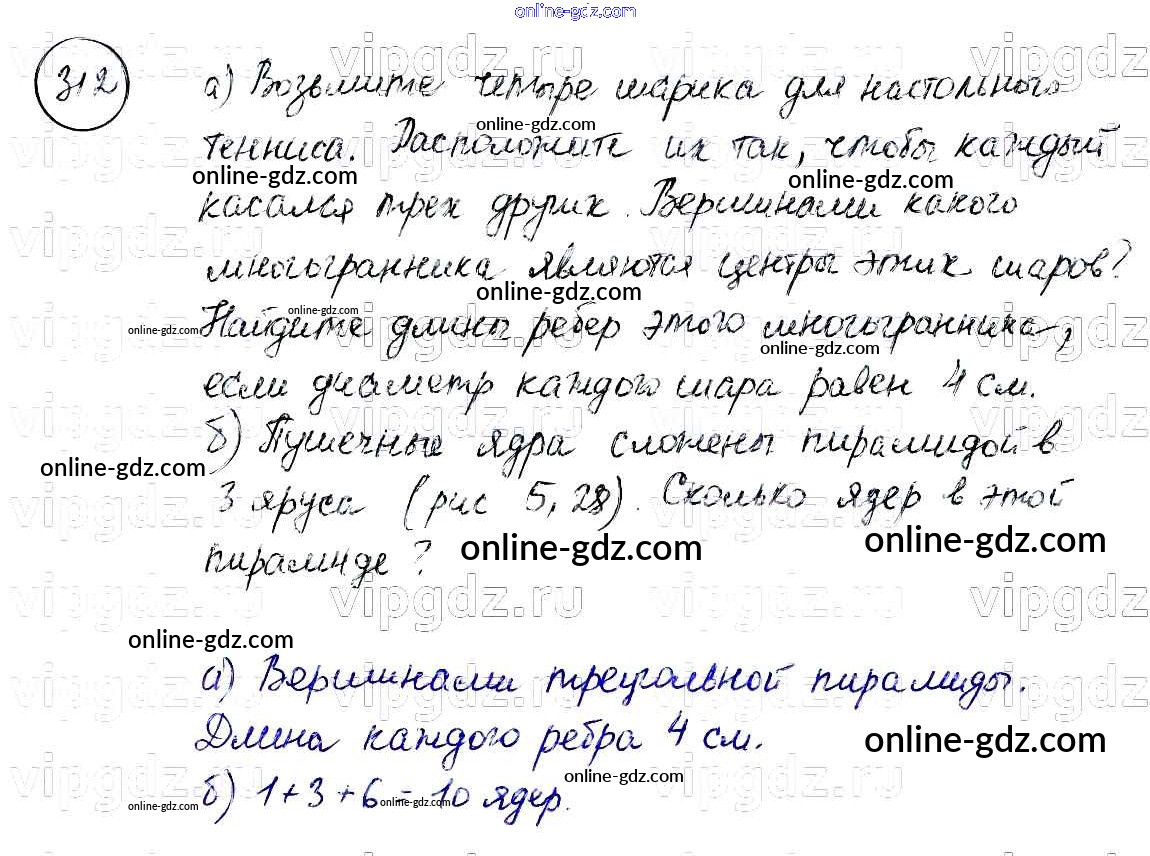 online-gdz.com
312
а) Возьмите четыре шарика для настольного
тенниса. Расположите их так, чтобы каждый
касался трех других. Вершинами какого
многогранника являются центры этих шаров?
Найдите длины ребер этого многогранника,
если диаметр каждого шара равен 4 см.
б) Пушечные ядра сложены пирамидой в
3 яруса (рис 5, 28). Сколько ядер в этой
пирамиде?
а) Вершинами треугольной пирамиды.
Длина каждого ребра 4 см.
б) 1+3+6=10 ядер.
vipgdz.ru
online-gdz.com